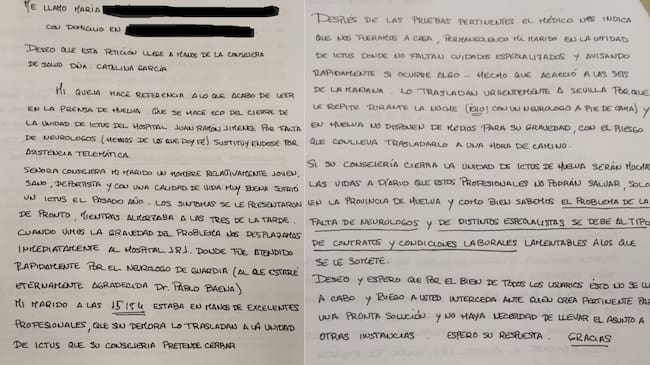 ME LLAMO MARIA
CON DOMICILIO EN
DESEO QUE ESTA PETICIÓN LLEGE A MANOS DE LA CONSEJERA
DE SALUD DÑA. CATALINA GARCÍA
MI QUEJA HACE REFERENCIA A LO QUE ACABO DE LEER
EN LA PRENSA DE HUELVA QUE SE HACE ECO DEL CIERRE DE
LA UNIDAD DE ICTUS DEL HOSPITAL JUAN RAMÓN JIMENEZ POR FALTA
DE NEURÓLOGOS (MEMOS DE LOS QUE DOY FÉ) SUSTITUYENDOSE POR
ASISTENCIA TELEMÁTICA.
SEÑORA CONSEJERA MI MARIDO UN HOMBRE RELATIVAMENTE JOVEN,
SANO, DEPORTISTA Y CON UNA CALIDAD DE VIDA MUY BUENA SUFRIÓ
UN ICTUS EL PASADO AÑO. LOS SINTOMAS SE LE PRESENTARON
DE PRONTO, MIENTRAS ALMORZABA A LAS TRES DE LA TARDE.
CUANDO VIMOS LA GRAVEDAD DEL PROBLEMA NOS DESPLAZAMOS
INMEDIATAMENTE AL HOSPITAL J.R.J. DONDE FUE ATENDIDO
RAPIDAMENTE POR EL NEUROLOGO DE GUARDIA (AL QUE ESTARÉ
ETÉRNAMENTE AGRADECIDA DR. PABLO BAENA)
MI MARIDO A LAS 15:154 ESTABA EN MANOS DE EXCELENTES
PROFESIONALES, QUE SIN DEMORA LO TRASLADAN A LA UNIDAD
DE ICTUS QUE SU CONSEJERIA PRETENDE CERRAR
DESPUÉS DE LAS PRUEBAS PERTINENTES EL MÉDICO NOS INDICA
QUE NOS FUERAMOS A CASA, PERMANECIENDO MI MARIDO EN LA UNIDAD
DE ICTUS DONDE NO FALTAN CUIDADOS ESPECIALIZADOS Y AVISANDO
RAPIDAMENTE SI OCURRE ALGO - HECHO QUE ACAECIÓ A LAS SEIS
DE LA MAÑANA. LO TRASLADAN URGENTEMENTE A SEVILLA PORQUE
LE REPITE DURANTE LA NOCHE (CON UN NEUROLOGO A PIE DE CAMA) Y
EN HUELVA NO DISPONEN DE MEDIOS PARA SU GRAVEDAD, CON EL RIESGO
QUE CONLLEVA TRASLADARLO A UNA HORA DE CAMINO.
SI SU CONSEJERÍA CIERRA LA UNIDAD DE ICTUS DE HUELVA SERÁN MUCHAS
LAS VIDAS A DIARIO QUE ESTOS PROFESIONALES NO PODRÁN SALVAR, SOLO
EN LA PROVINCIA DE HUELVA Y COMO BIEN SABEMOS EL PROBLEMA DE LA
FALTA DE NEURÓLOGOS Y DE DISTINTOS ESPECIALISTAS SE DEBE AL TIPO
DE CONTRATOS Y CONDICIONES LABORALES LAMENTABLES A LOS QUE
SE LE SOMETE.
DESEO Y ESPERO QUE POR EL BIEN DE TODOS LOS USUARIOS ÉSTO NO SE LL
A CABO Y RUEGO A USTED INTERCEDA ANTE QUIEN CREA PERTINENTE PA
UNA PRONTA SOLUCIÓN Y NO HAYA NECESIDAD DE LLEVAR EL ASUNTO A
OTRAS INSTANCIAS. ESPERO SU RESPUESTA. GRACIAS